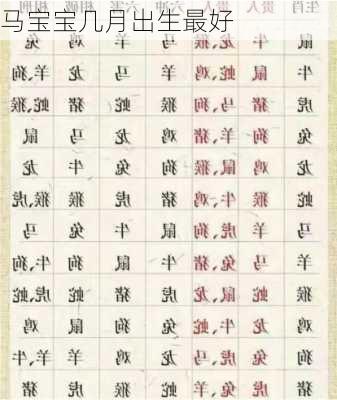 马宝宝几月出生最好
生肖 贵人 贵人 六冲 六害 相破 相刑
鼠 牛 龙、猴 马 羊 鸡 兔
牛 鼠 蛇、鸡 羊 马 龙 羊、狗
虎 猪 马、狗 猴 蛇 猪 蛇、猴
兔 狗 羊、猪 鸡 龙 马 鼠
龙 鸡 鼠、猴 狗 兔 牛 龙
蛇 猴 牛、鸡 猪 虎 猴 猴、虎
马 羊 虎、狗 鼠 牛 兔 马
羊 马 兔、猪 牛 鼠 狗 狗、牛
猴 蛇 鼠、龙 虎 猪 蛇 蛇、虎
鸡 龙 牛、蛇 兔 狗 鼠 鸡
狗 兔 虎、马 龙 鸡 羊 羊、牛
猪 虎 兔、羊 蛇 猴 虎 猪